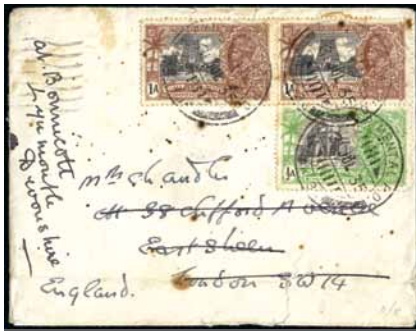 at Bonnicott
Lynmouth
Devonshire
1A
1A
½A
Mrs Chandler
at 38 Clifford Avenue
East Sheen
London SW14
England.